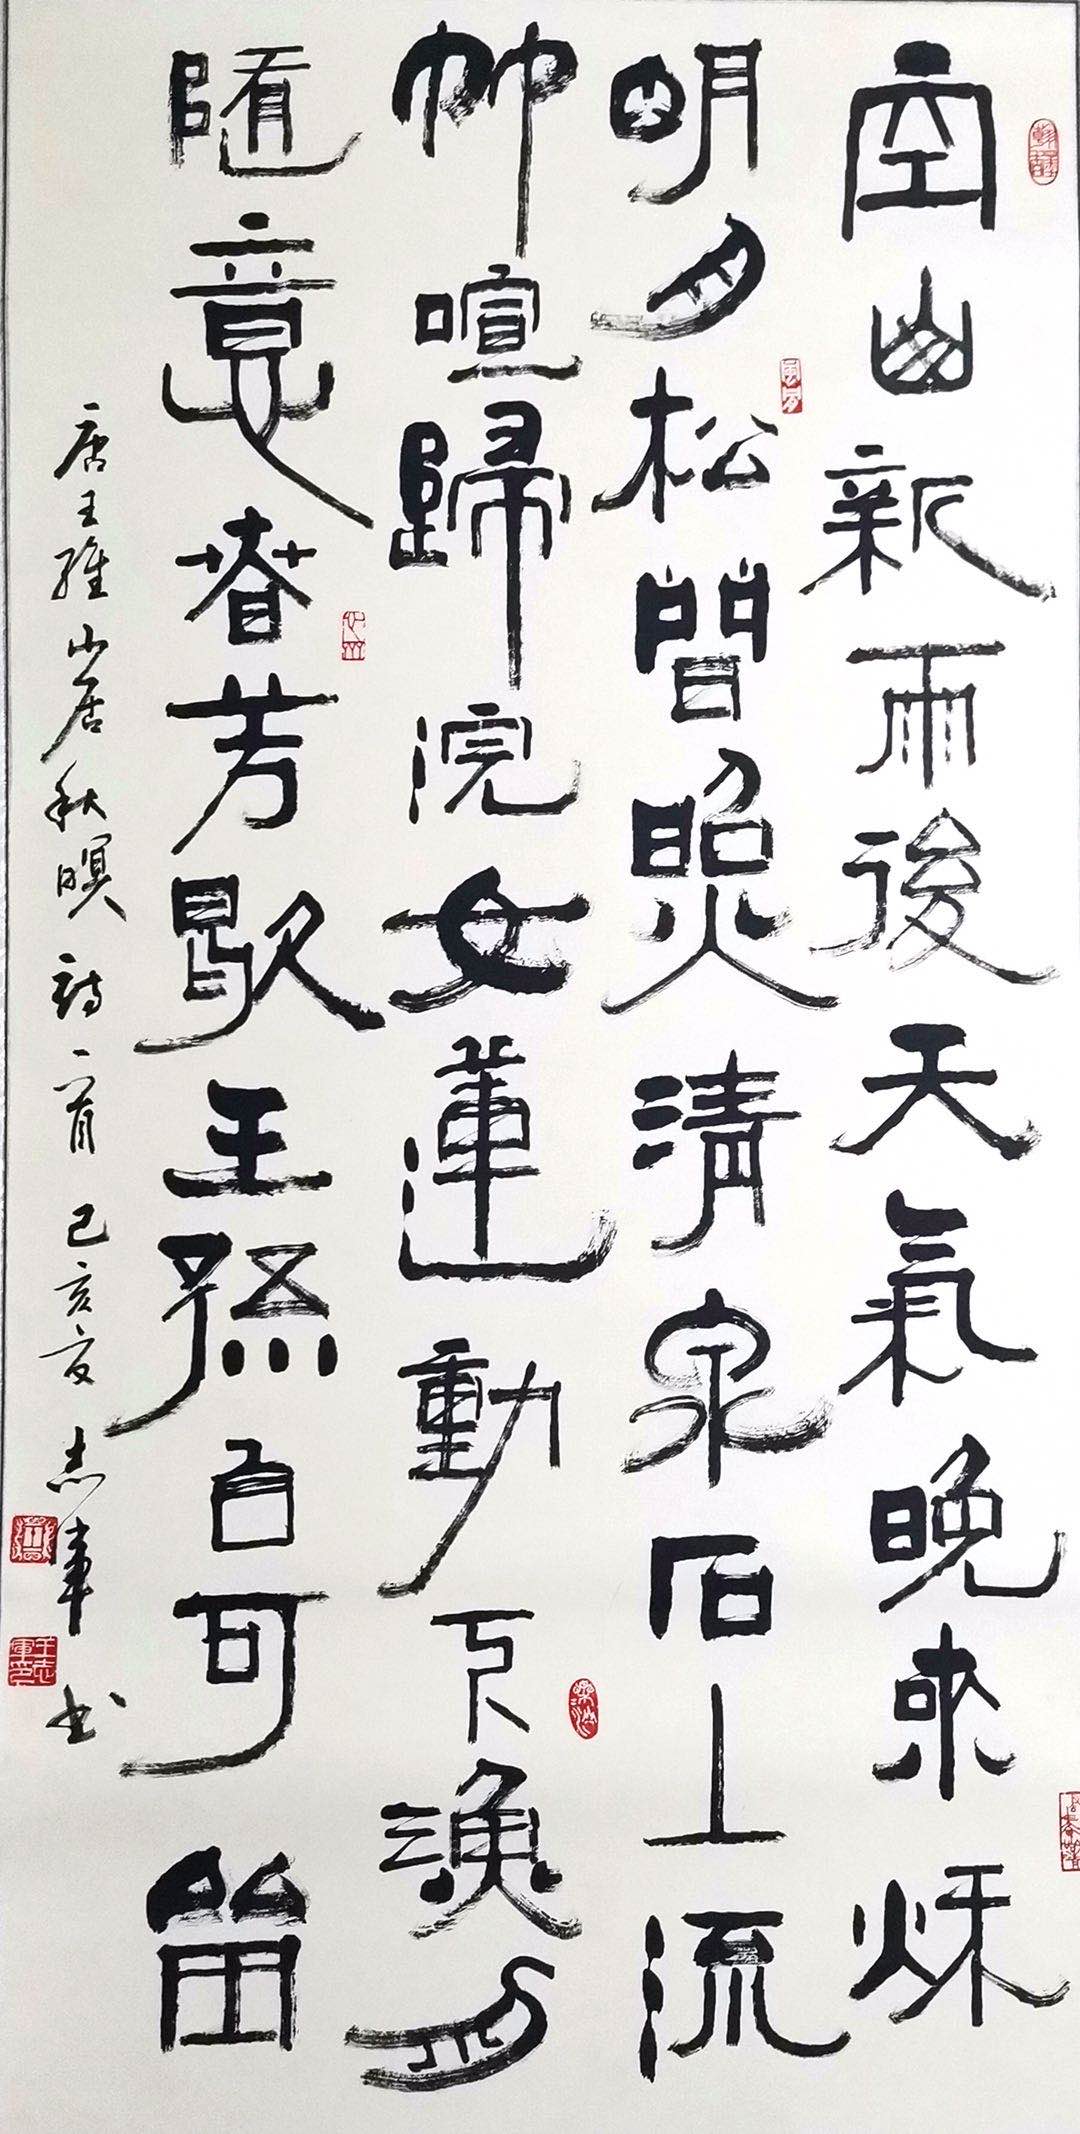 空山新雨後天氣晚來秌
明月松間照清泉石上流
竹喧歸浣女蓮動下漁舟
隨意春芳歇王孫自可留
唐王維山居秋暝詩一首 己亥夏 志軍书